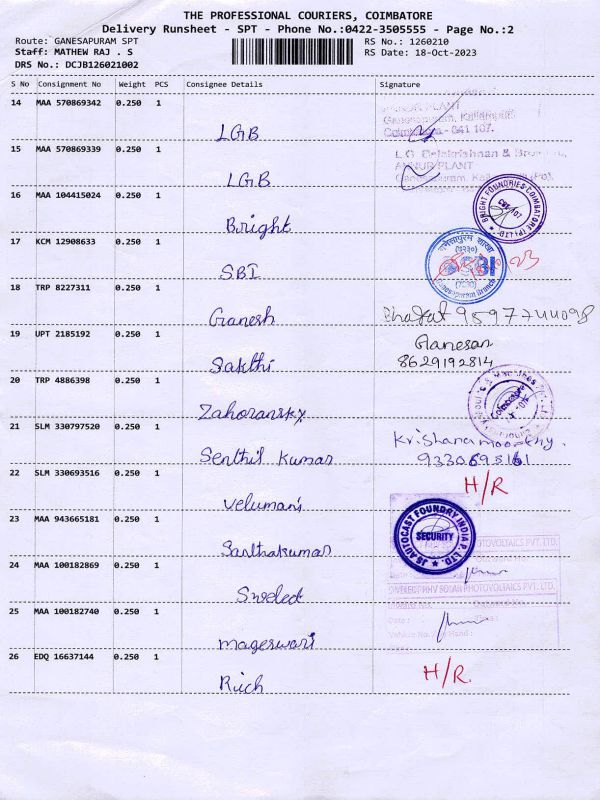 THE PROFESSIONAL COURIERS, COIMBATORE
Delivery Runsheet - SPT - Phone No.:0422-3505555 - Page No.:2
Route: GANESAPURAM SPT
RS No.: 1260210
Staff: MATHEW RAJ . S
RS Date: 18-Oct-2023
DRS No.: DCJB126021002
S No Consignment No Weight PCS Consignee Details Signature
14 MAA 570869342 0.250 1
LGB
ANNUR PLANT
Ganesapuram, Kallampalayam
Coimbatore - 641 107.
15 MAA 570869339 0.250 1
LGB
L.G. Balakrishnan &
ANNUR PLANT
Ganesapuram,
16 MAA 104415024 0.250 1
Bright
BRIGHT FOUNDRIES COIMBATORE (P) LTD
17 KCM 12908633 0.250 1
SBI
SBI
Ganesapuram Branch
18 TRP 8227311 0.250 1
Ganesh
9597744098
19 UPT 2185192 0.250 1
Sakthi
Ganesan
8629192814
20 TRP 4886398 0.250 1
Zahoransky
21 SLM 330797520 0.250 1
Senthil Kumar
Krishanamoorthy.
9330695161
22 SLM 330693516 0.250 1
Velumani
H/R
23 MAA 943665181 0.250 1
Santhakumar
JS AUTOCAST FOUNDRY INDIA P. LTD.
SECURITY
24 MAA 100182869 0.250 1
Sweled
PHOTOVOLTAICS PVT. LTD.
25 MAA 100182740 0.250 1
mageswari
SWELECT HHV SOLAR PHOTOVOLTAICS PVT. LTD.
Date:
26 EDQ 16637144 0.250 1
Rich
H/R